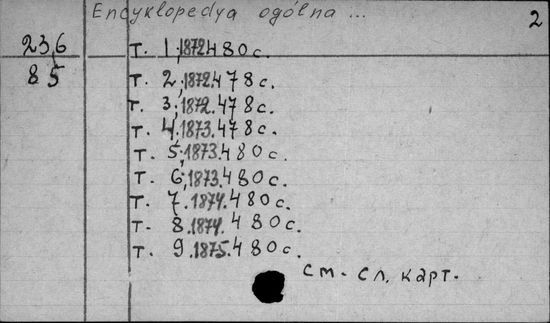 Encyklopedya ogólna ... 2
23,6 т. 1, 1872. 480 с.
85 т. 2, 1872. 478 с.
т. 3, 1872. 478 с.
т. 4. 1873. 478 с.
т. 5, 1873. 480 с.
т. 6, 1873. 480 с.
т. 7. 1874. 480 с.
т. 8. 1874. 480 с.
т. 9. 1875. 480 с.
см. сл. карт.